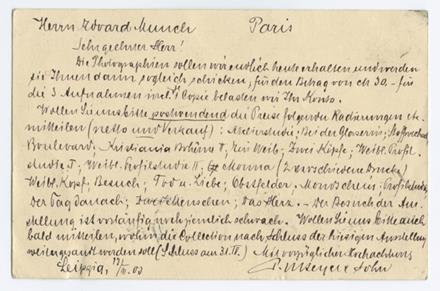 Herrn Edvard Munch Paris
Sehr geehrter Herr!
Die Photographien sollen wir endlich heute erhalten und werden
sie Ihnen dann sogleich schicken, für den Betrag von M 30.- für
die 3 Aufnahmen incl. 1 Copie belasten wir Ihr Konto.
Wollen Sie uns bitte postwendend die Preise folgender Radierungen etc.
mitteilen (netto und Verkauf): Atelierstudie; Bei der
Boulevard; Kristiania Bohème I; Ein Weib; Zwei Köpfe; Weibl. Profil-
studie I; Weibl. Profilstudie II; Madonna (2 verschiedene Drucke)
Weibl. Kopf; Besuch; Tod u. Liebe; Obstfelder; Mondschein; Profilstudie
Der Tag danach; Zwei Menschen; Das Herz. – Der Besuch der Aus-
stellung ist vorläufig noch ziemlich schwach. Wollen Sie uns bitte auch
bald mitteilen, wohin die Collection nach Schluss der hiesigen Ausstellung
weitergesandt werden soll (Schluss am 31. III). Mit vorzüglicher Hochachtung
Leipzig, III. 03 Beyer & Sohn